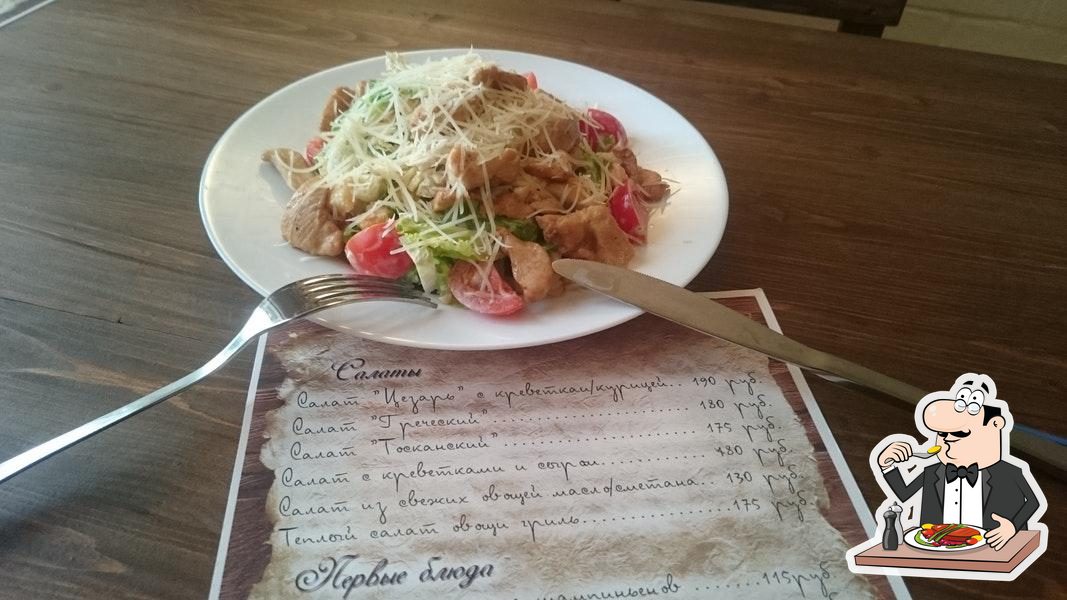 Салаты
Салат "Цезарь" с креветкаи/курицей.. 190 руб.
Салат "Греческий"......................... 180 руб.
Салат "Тосканский"........................ 175 руб.
Салат с креветками и сыром............ 180 руб.
Салат из свежих овощей масло/сметана.. 130 руб.
Теплый салат овощи гриль.................175 руб.
Первые блюда
шампиньенов .......115руб.